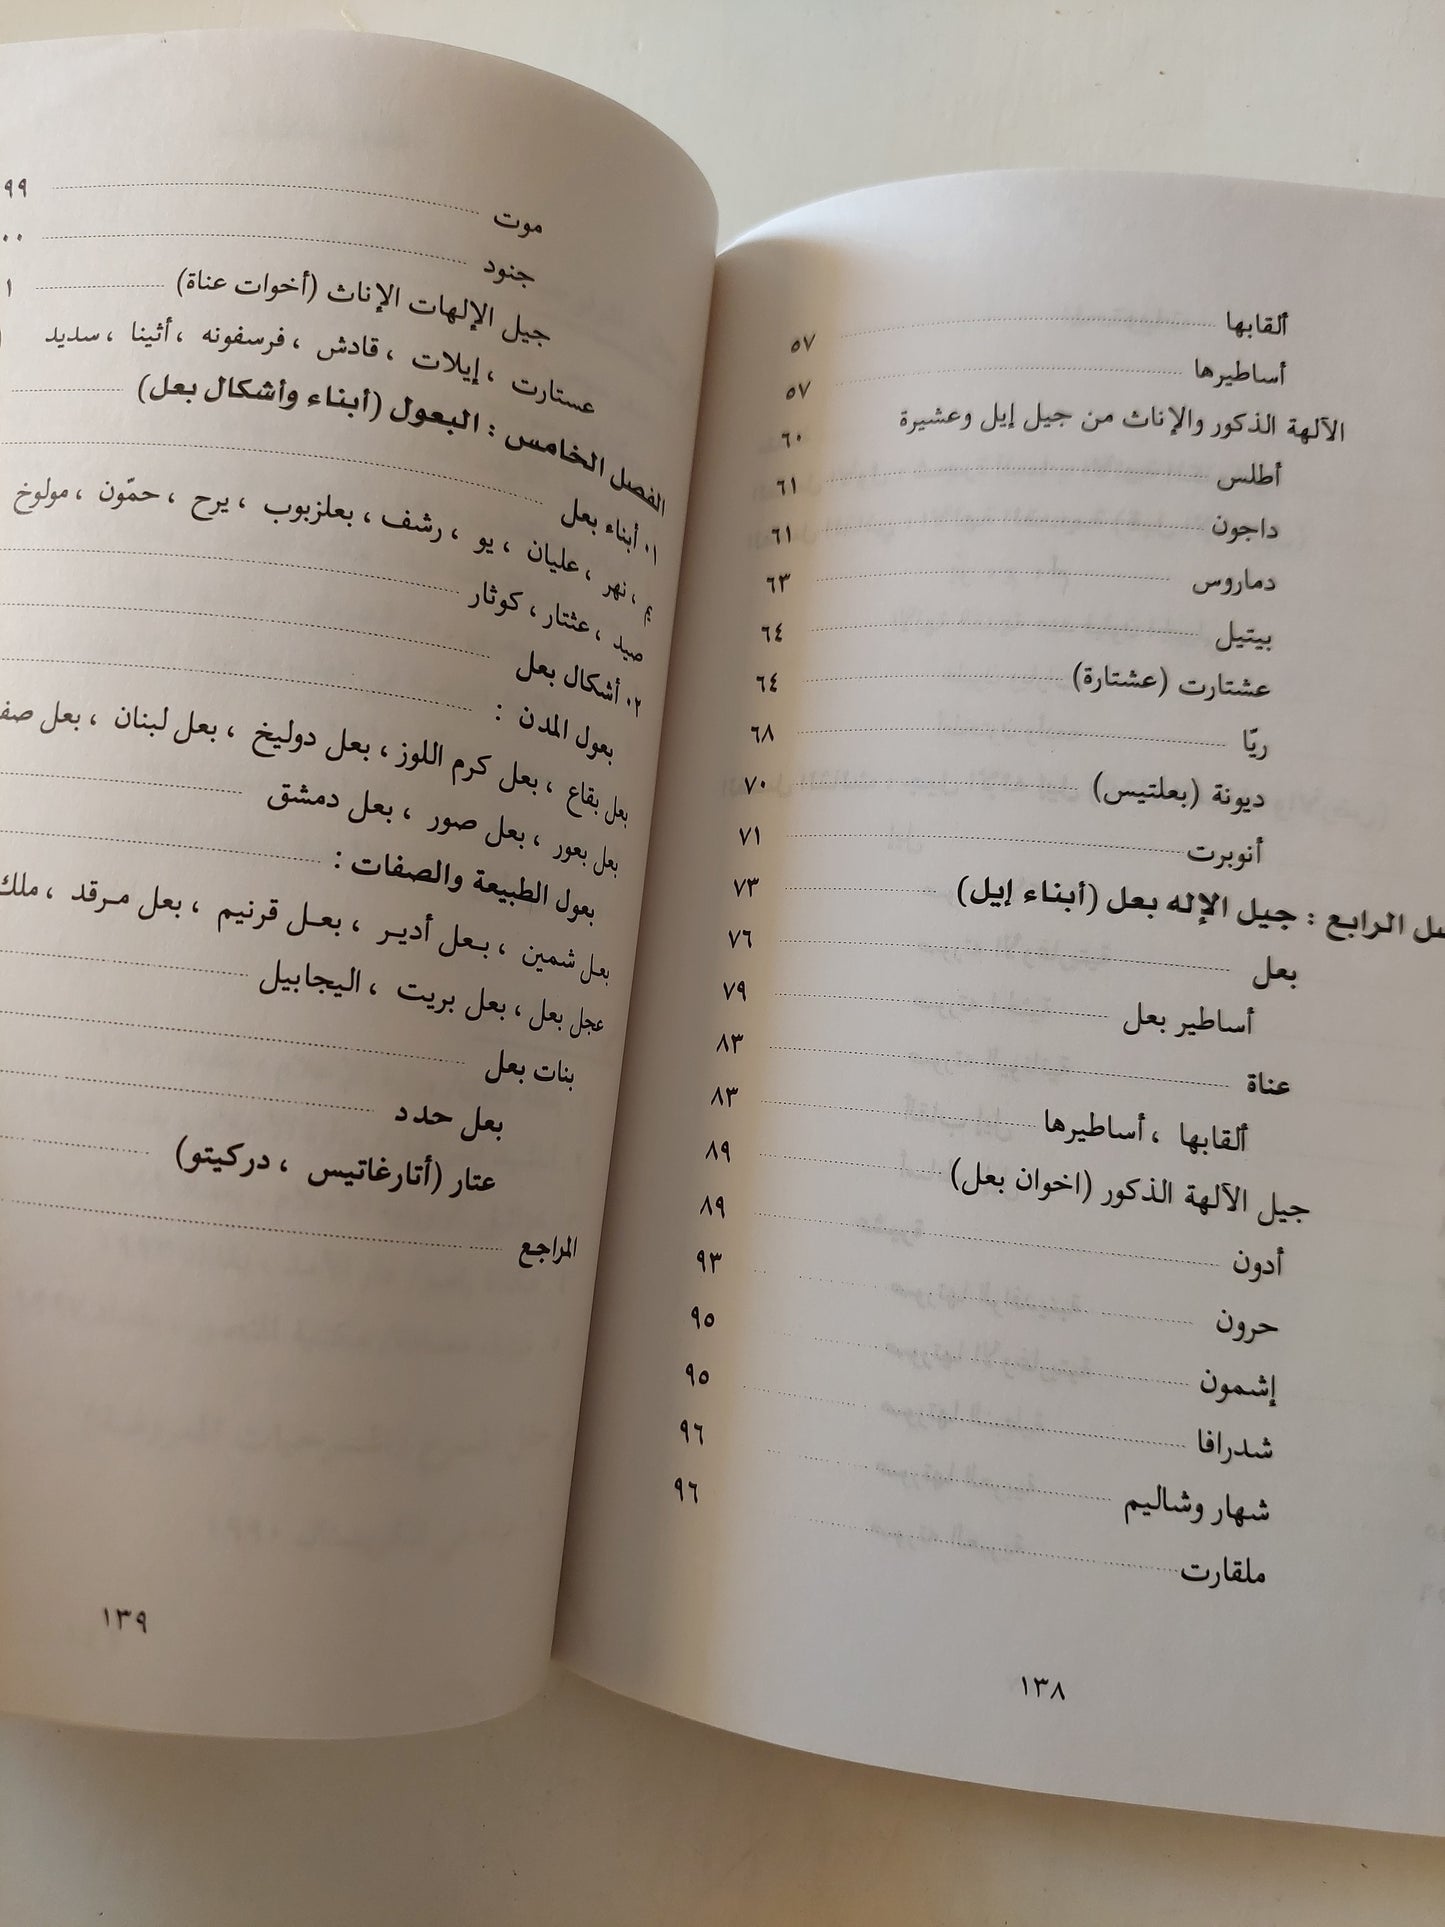 ألقابها ٥٧
أساطيرها ٥٧
الآلهة الذكور والإناث من جيل إيل وعشيرة ٦٠
أطلس ٦١
داجون ٦١
دماروس ٦٣
بيتيل ٦٤
عشتارت (عشتارة) ٦٤
ريّا ٦٨
ديونة (بعلتيس) ٧٠
أنوبرت ٧١
الرابع : جيل الإله بعل (أبناء إيل) ٧٣
بعل ٧٦
أساطير بعل ٧٩
عناة ٨٣
ألقابها ، أساطيرها ٨٣
جيل الآلهة الذكور (اخوان بعل) ٨٩
أدون ٨٩
حرون ٩٣
إشمون ٩٥
شدرافا ٩٥
شهار وشاليم ٩٦
ملقارت ٩٦
١٣٨
موت ٩٩
جنود
جيل الإلهات الإناث (أخوات عناة)
عستارت ، إيلات ، قادش ، فرسفونه ، أثينا ، سديد
الفصل الخامس : البعول (أبناء وأشكال بعل)
٠١ أبناء بعل
يم ، نهر ، عليان ، يو ، رشف ، بعلزبوب ، يرح ، حمّون ، مولوخ
صيد ، عثتار ، كوثار
٠٢ أشكال بعل
بعول المدن :
بعل بقاع ، بعل كرم اللوز ، بعل دوليخ ، بعل لبنان ، بعل
بعل بعور ، بعل صور ، بعل دمشق
بعول الطبيعة والصفات :
بعل شمين ، بعل أدير ، بعل قرنيم ، بعل مرقد ، ملك
عجل بعل ، بعل بريت ، اليجابيل
بنات بعل
بعل حدد
عتار (أتارغاتيس ، دركيتو)
المراجع
١٣٩